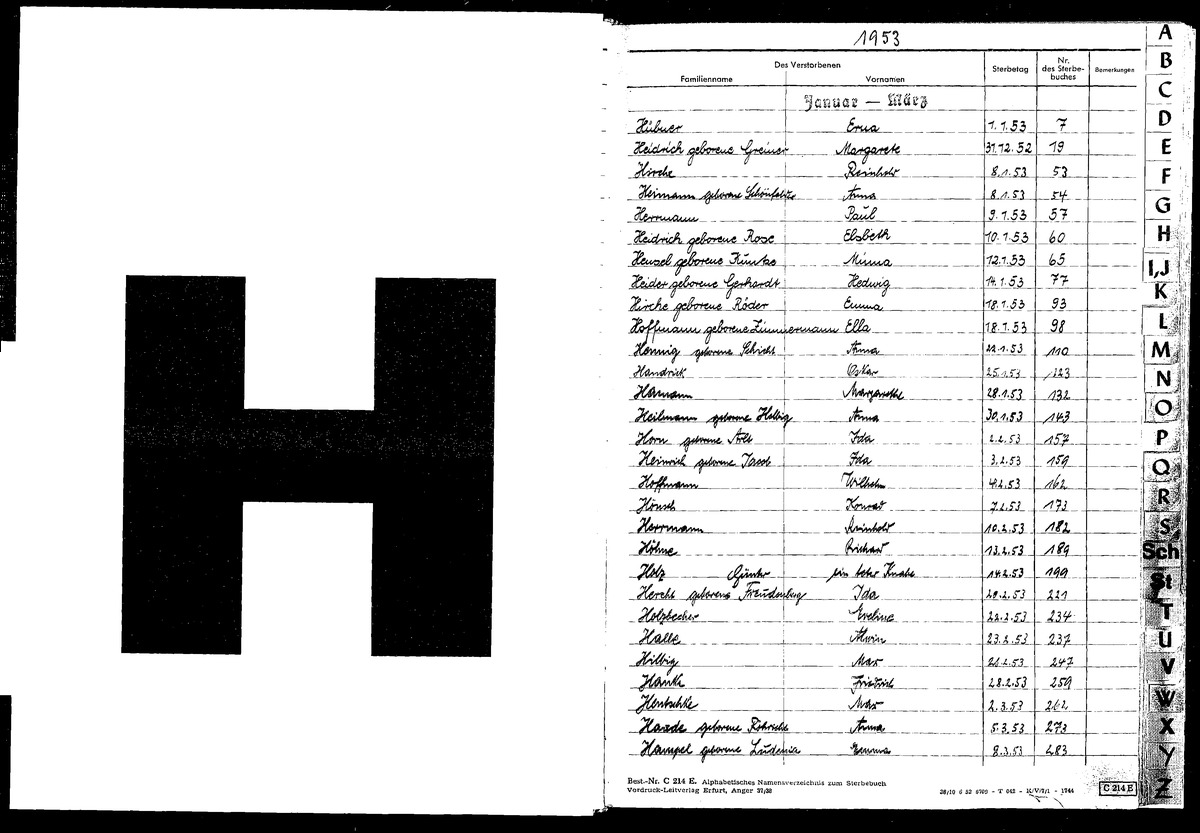 H
1953
Des Verstorbenen
Familienname Vornamen Sterbetag Nr. des Sterbe-buches Bemerkungen
Januar — März
Hübner Erna 1.1.53 7
Heidrich geborene Greiner Margarete 31.12.52 19
Hirche Reinhold 8.1.53 53
Heimann geborene Anna 8.1.53 54
Herrmann Paul 9.1.53 57
Heidrich geborene Rose Elsbeth 10.1.53 60
Hensel geborene Kuntze Minna 12.1.53 65
Heider geborene Gerhardt Hedwig 14.1.53 77
Hirche geborene Röder Emma 18.1.53 93
Hoffmann geborene Zimmermann Ella 18.1.53 98
Hennig geborene Schicht Anna 22.1.53 110
Handrick Oskar 25.1.53 123
Hamann Margarethe 28.1.53 132
Heilmann geborene Helbig Anna 30.1.53 143
Horn geborene Ida 2.2.53 157
Heinrich geborene Ida 3.2.53 159
Hoffmann Wilhelm 4.2.53 162
Hönsch Konrad 7.2.53 173
Herrmann Reinhold 10.2.53 182
Höhne Richard 13.2.53 189
Holz Günter ein toter Knabe 14.2.53 199
Hercht geborene Freudenberg Ida 20.2.53 221
Holzbecher Eveline 22.2.53 234
Halle Alwin 23.2.53 237
Hilbig Max 21.2.53 247
Hanke Friedrich 28.2.53 259
Hentschke Max 2.3.53 262
Haade geborene Anna 5.3.53 273
Hampel geborene Ludenia Emma 8.3.53 283
Best.-Nr. C 214 E. Alphabetisches Namensverzeichnis zum Sterbebuch
Vordruck-Leitverlag Erfurt, Anger 37/38
C 214 E
A
B
C
D
E
F
G
H
I,J
K
L
M
N
O
P
Q
R
S
Sch
St
T
U
V
W
X
Y
Z